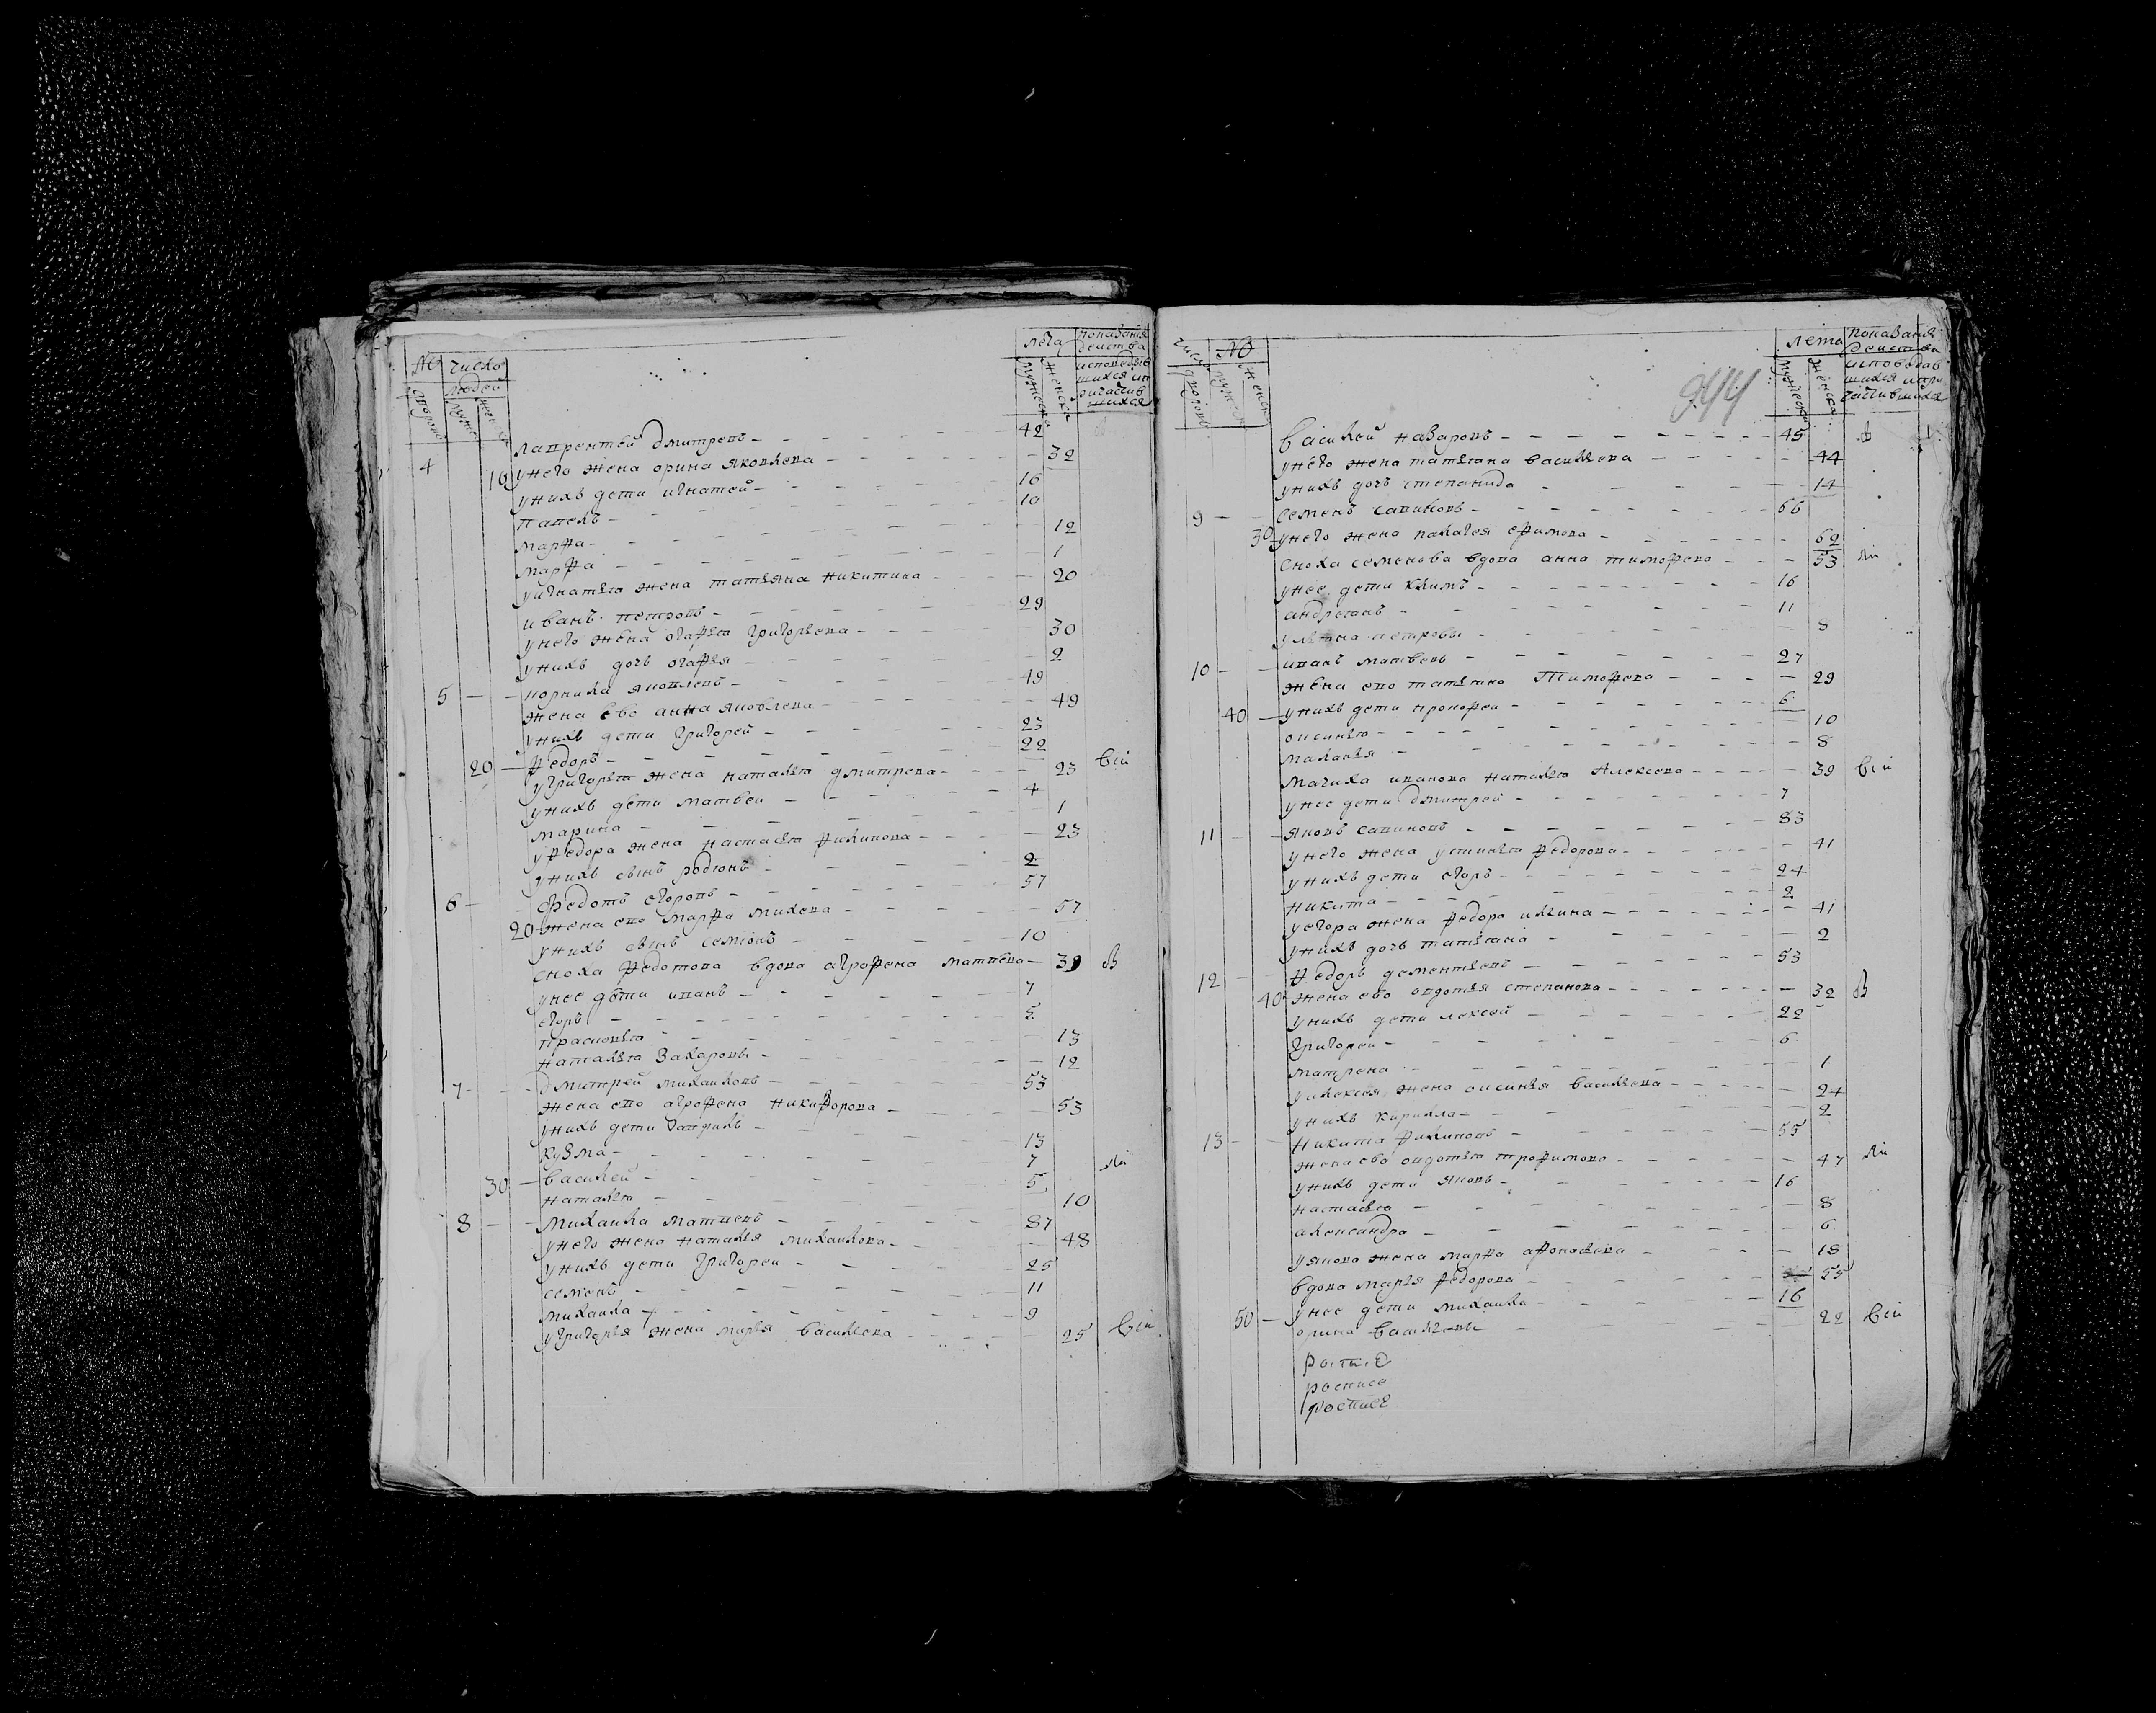 № Число
людей
дворовъ
мужеска
женска
лета
мужеска
женска
показание
деиства
исповедав
шихся ип
ричастив
шихся
лаврентей дмитревъ 42
4 10 унего жена орина яковлева 32
унихъ дети игнатей 16
павелъ 10
марфа 12
марфа 1
уигнатья жена татьяна никитина 20
иванъ петровъ 29
унего жена огафья григорьева 30
унихъ дочь огафья 2
5 корнила яковлевъ 49
жена ево анна яковлева 49
унихъ дети григорей 23
20 федоръ 22
угригорья жена наталья дмитрева 23 Вси
унихъ дети матвеи 4
марина 1
уфедора жена настасья филипова 23
унихъ сынъ родионъ 2
6 федотъ егоровъ 57
20 жена ево марфа михева 57
унихъ сынъ семионъ 10
сноха федотова вдова аграфена матвева 39 В
унее дети иванъ 7
егоръ 5
прасковья 13
наталья Захаровы 12
7 дмитрей михаиловъ 53
жена ево аграфена никифорова 53
унихъ дети гаврилъ 13
кузма 7 ли
30 василей 5
наталья 10
8 михаила матвевъ 87
унего жена наталья михаилова 48
унихъ дети григореи 25
семенъ 11
михаила 9
угригорья жена марья васильева 25 Вси
число
дворовъ
№
мужеска
женска
944
лета
мужеска
женска
показания
деиства
исповедав
шихся ипри
частившихся
василей назаровъ 45 В
унего жена татьяна васильева 44
унихъ дочь степанида 14
9 семенъ савиновъ 66
30 унего жена палагея ефимова 62
сноха семенова вдова анна тимофева 53 ли
унее дети климъ 16
андреянъ 11
ульяна петровы 8
10 иванъ матвевъ 27
жена ево татьяна Тимофева 29
40 унихъ дети прокофеи 6
оксинья 10
маланья 8
мачиха иванова наталья Алексева 39 Вси
унее дети дмитрей 7
11 яковъ савиновъ 83
унего жена устинья федорова 41
унихъ дети егоръ 24
никита 2
уегора жена федора ильина 41
унихъ дочь татьяна 2
12 федоръ дементьевъ 53
40 жена ево овдотья степанова 32 В
унихъ дети лексей 22
григореи 6
матрена 1
уалексея жена оксинья васильева 24
унихъ кирилла 2
13 никита филиповъ 55
жена ево овдотья трофимова 47 ли
унихъ дети яковъ 16
настасья 8
александра 6
уякова жена марфа афонасьева 18
вдова марья федорова 55
50 унее дети михаила 16
орина васильевы 22 Вси
роспись
роспись
роспись